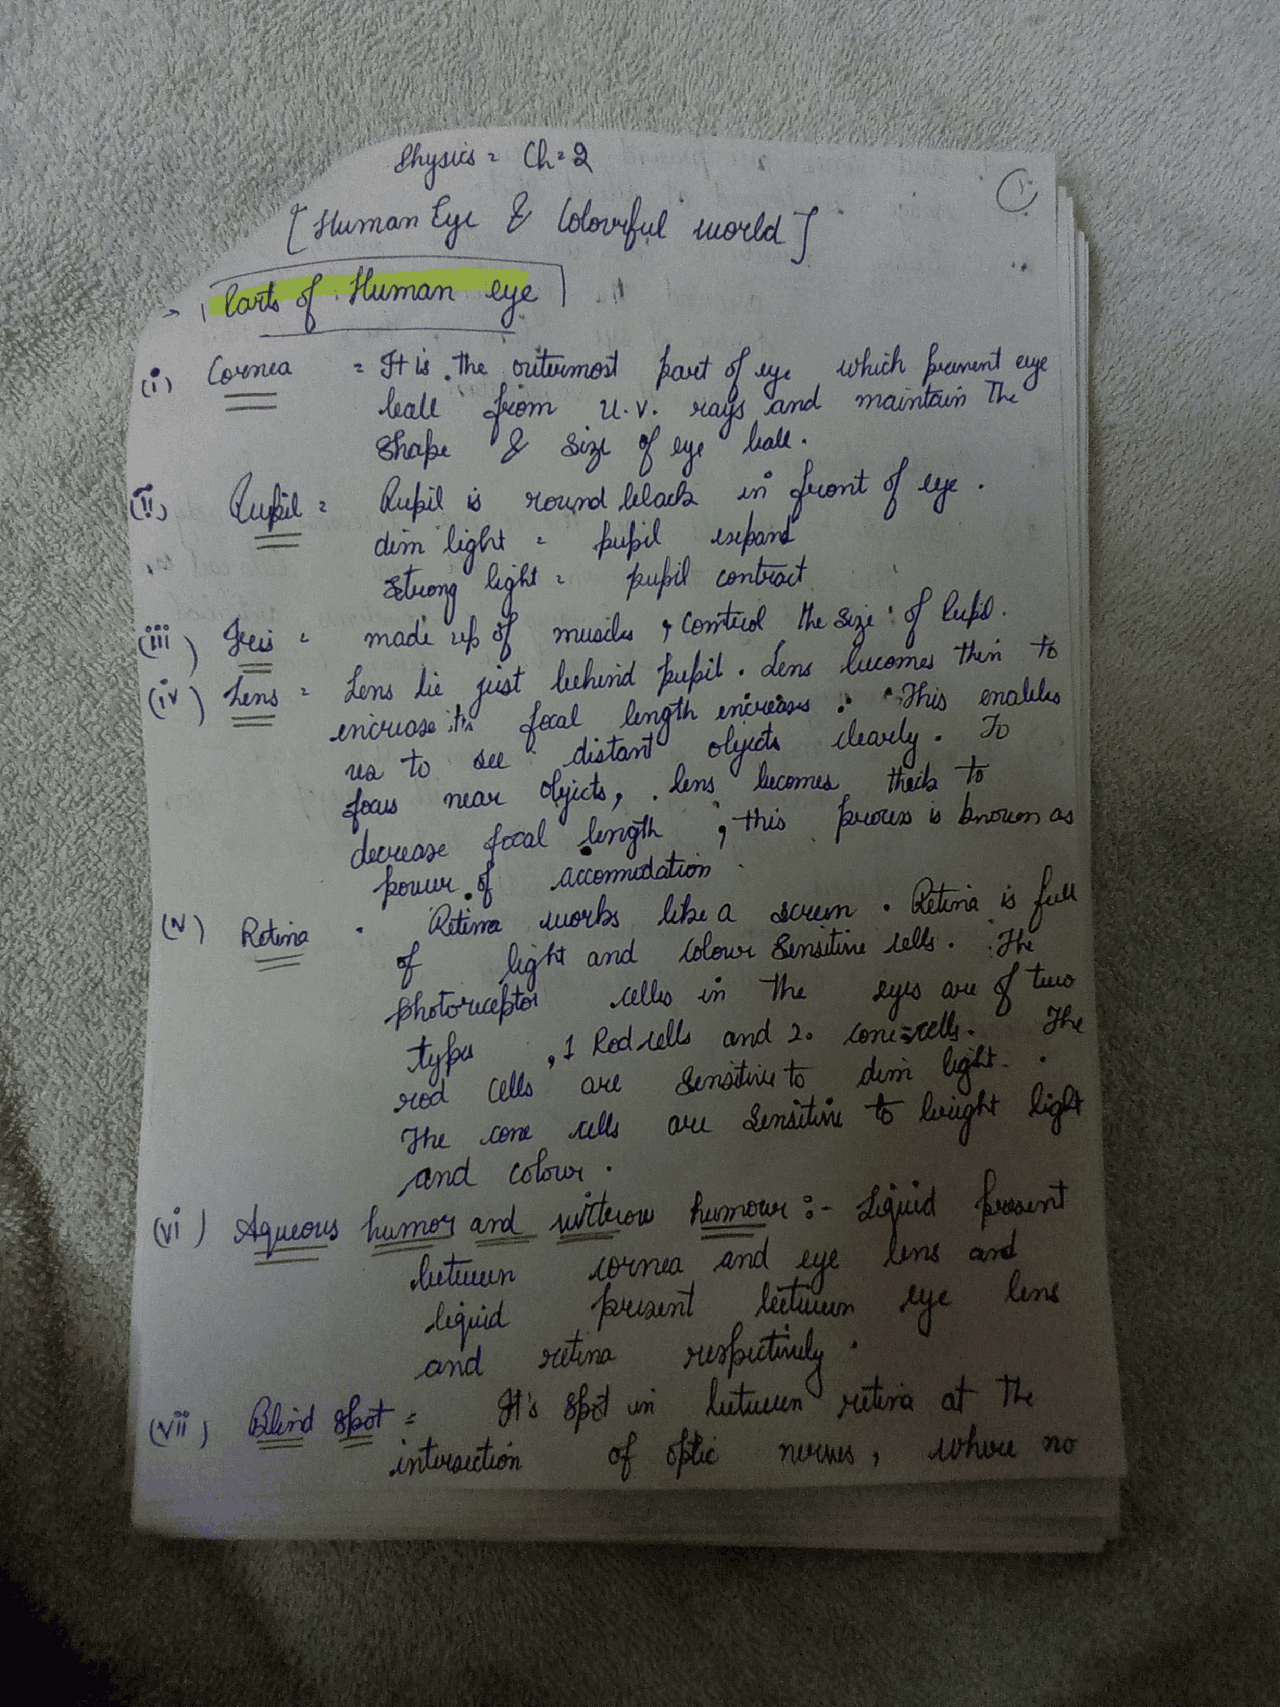 Physics = Ch = 2
[Human Eye & Colourful world]
→ Parts of Human eye
(i) Cornea = It is the outermost part of eye which prevent eye
ball from U.V. rays and maintain the
shape & size of eye ball.
(ii) Pupil = Pupil is round black in front of eye.
dim light = pupil expand
strong light = pupil contract
(iii) Iris = made up of muscles, control the size of pupil.
(iv) Lens = Lens lie just behind pupil. Lens becomes thin to
increase its focal length increases. This enables
us to see distant objects clearly. To
focus near objects, lens becomes thick to
decrease focal length, this process is known as
power of accomodation
(v) Retina . Retina works like a screen. Retina is full
of light and colour sensitive cells. The
photoreceptor cells in the eyes are of two
types, 1 Rod cells and 2. cone cells. The
rod cells are sensitive to dim light.
The cone cells are sensitive to bright light
and colour.
(vi) Aqueous humor and humour :- Liquid present
between cornea and eye lens and
liquid present between eye lens
and retina respectively.
(vii) Blind spot = It's spot in between retina at the
intersection of optic nerves, where no